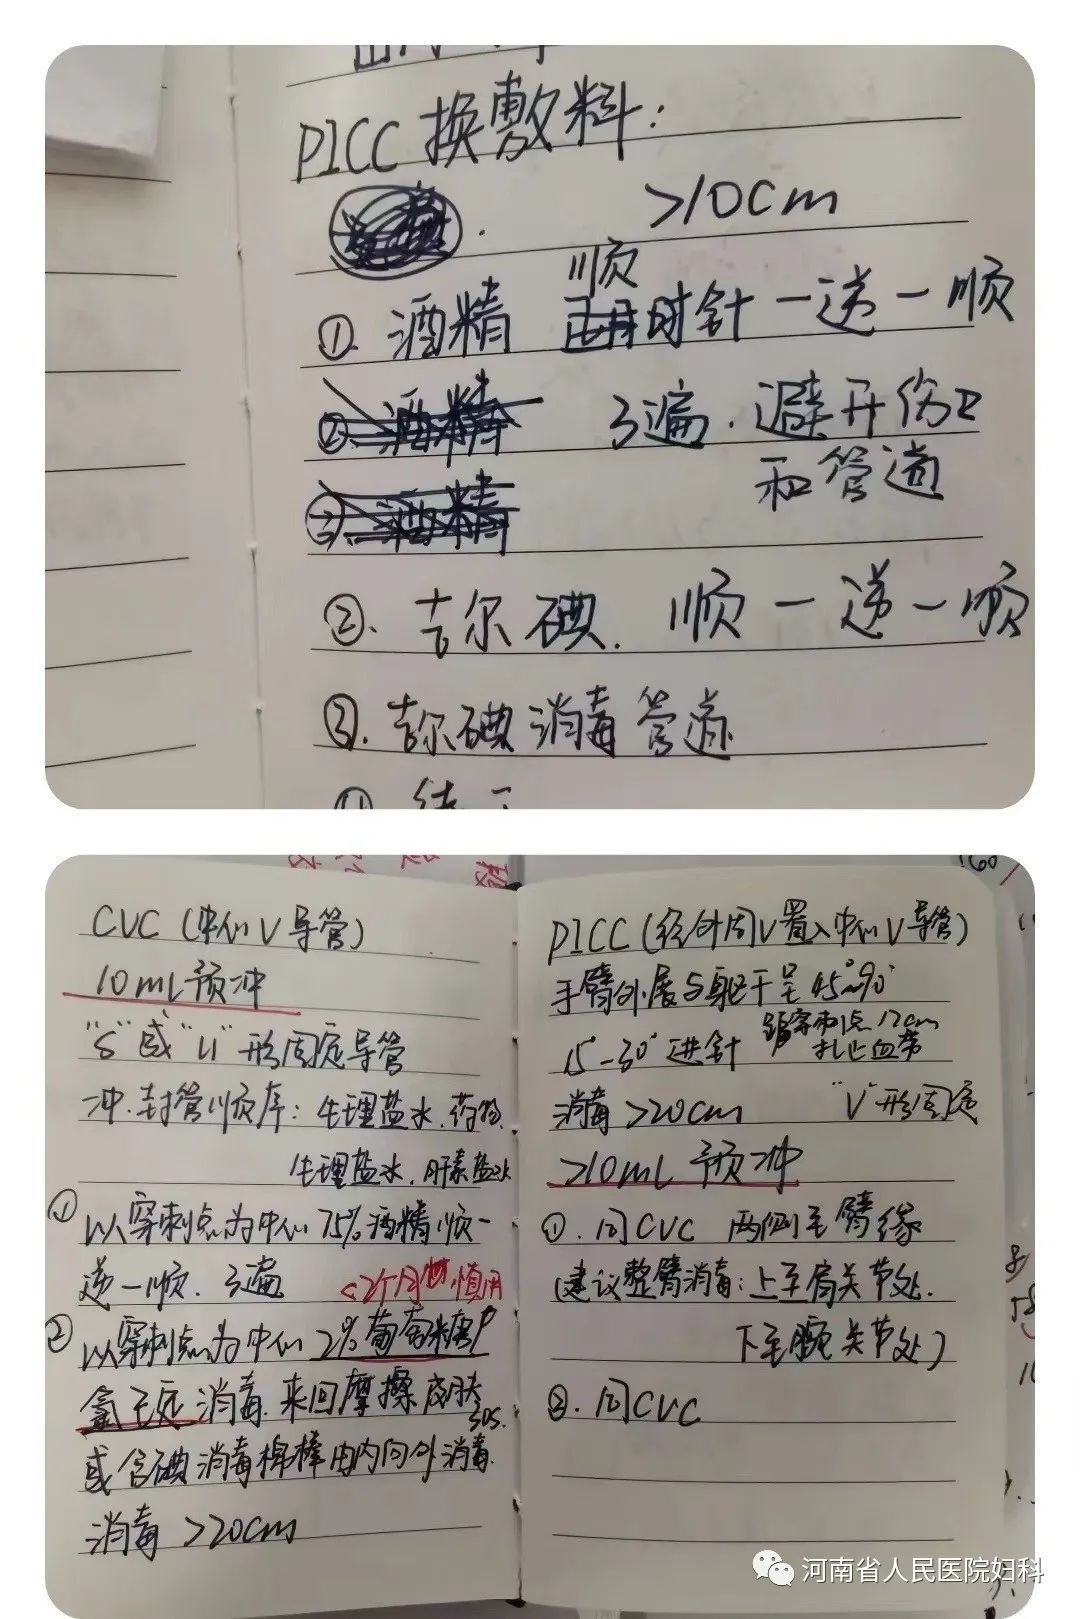 PICC 换敷料:
>10cm
顺
①. 酒精 时针一逆一顺
②. 酒精 3遍. 避开伤口
和管道
③. 酒精
②. 吉尔碘. 顺一逆一顺
③. 吉尔碘消毒管道
CVC (中心V导管)
10mL预冲
"S"或"U"形固定导管
冲.封管顺序: 生理盐水.药物.
生理盐水.肝素盐水
① 以穿刺点为中心 75%酒精顺一
逆一顺. 3遍 <2个月 慎用
② 以穿刺点为中心 2%葡萄糖
氯己定 消毒.来回摩擦皮肤
30s.
或含碘消毒棉棒由内向外消毒.
消毒 >20cm
PICC (经外周V置入中心V导管)
手臂外展与躯干呈 45°~90°
15°-30° 进针 距穿刺点 12cm
扎止血带
消毒 >20cm "V"形固定
>10mL 预冲
①. 同CVC 两侧至臂缘
(建议整臂消毒: 上至肩关节处.
下至腕关节处)
②. 同CVC
河南省人民医院妇科